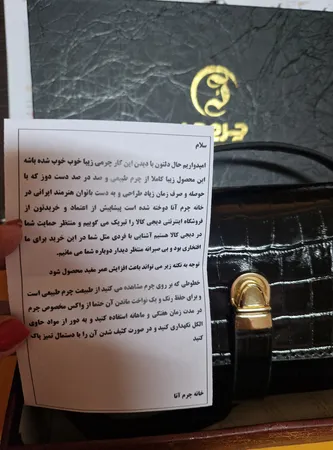 سلام
امیدواریم حال دلتون با دیدن این کار چرمی زیبا خوب خوب شده باشه
این محصول زیبا کاملا از چرم طبیعی و صد در صد دست دوز که با
حوصله و صرف زمان زیاد طراحی و به دست بانوان هنرمند ایرانی در
خانه چرم آنا دوخته شده است پیشاپیش از اعتماد و خریدتون از
فروشگاه اینترنتی دیجی کالا را تبریک می گوییم و منتظر حمایت شما
در دیجی کالا هستیم آشنایی با فردی مثل شما در این خرید برای ما
افتخاری بود و بی صبرانه منتظر دیدار دوباره شما می مانیم.
توجه به نکته زیر می تواند باعث افزایش عمر مفید محصول شود
خطوطی که بر روی چرم مشاهده می کنید از طبیعت چرم طبیعی است
و برای حفظ رنگ و یک نواخت ماندن آن حتما از واکس مخصوص چرم
در مدت زمان هفتگی و ماهانه استفاده کنید و به دور از مواد حاوی
الکل نگهداری کنید و در صورت کثیف شدن آن را با دستمال تمیز پاک
کنید
خانه چرم آنا